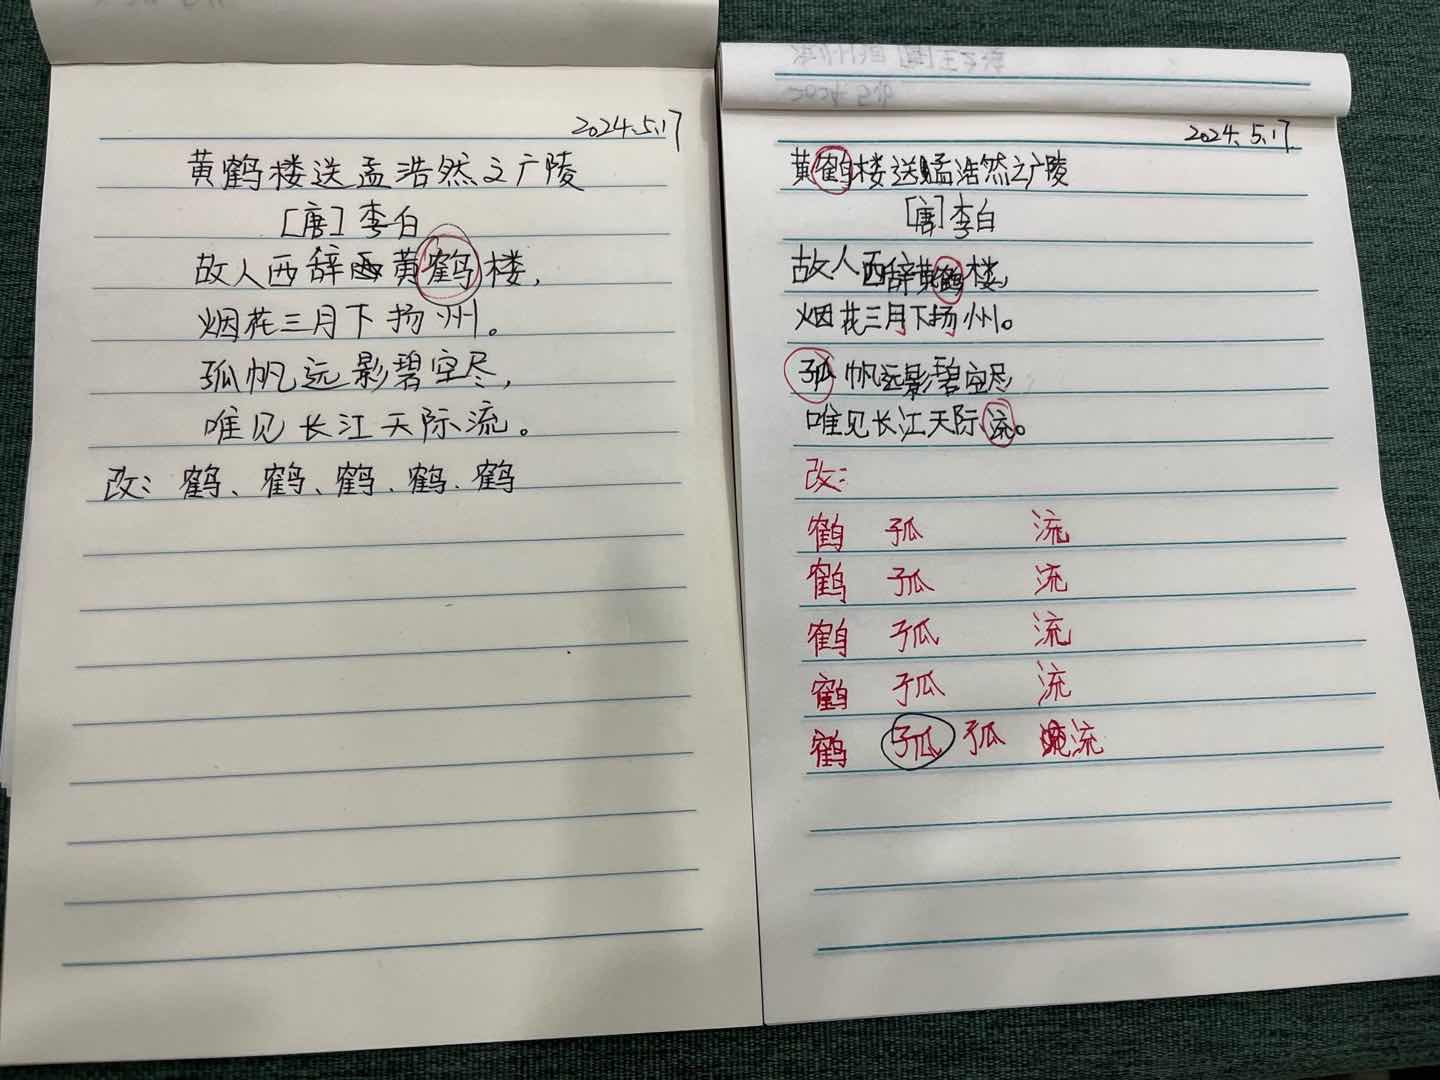 2024.5.17
黄鹤楼送孟浩然之广陵
[唐]李白
故人西辞黄鹤楼,
烟花三月下扬州。
孤帆远影碧空尽,
唯见长江天际流。
改:鹤、鹤、鹤、鹤、鹤
2024.5.17
黄鹤楼送孟浩然之广陵
[唐]李白
故人西辞黄鹤楼,
烟花三月下扬州。
孤帆远影碧空尽,
唯见长江天际流。
改:
鹤 孤 流
鹤 孤 流
鹤 孤 流
鹤 孤 流
鹤 孤 孤 流